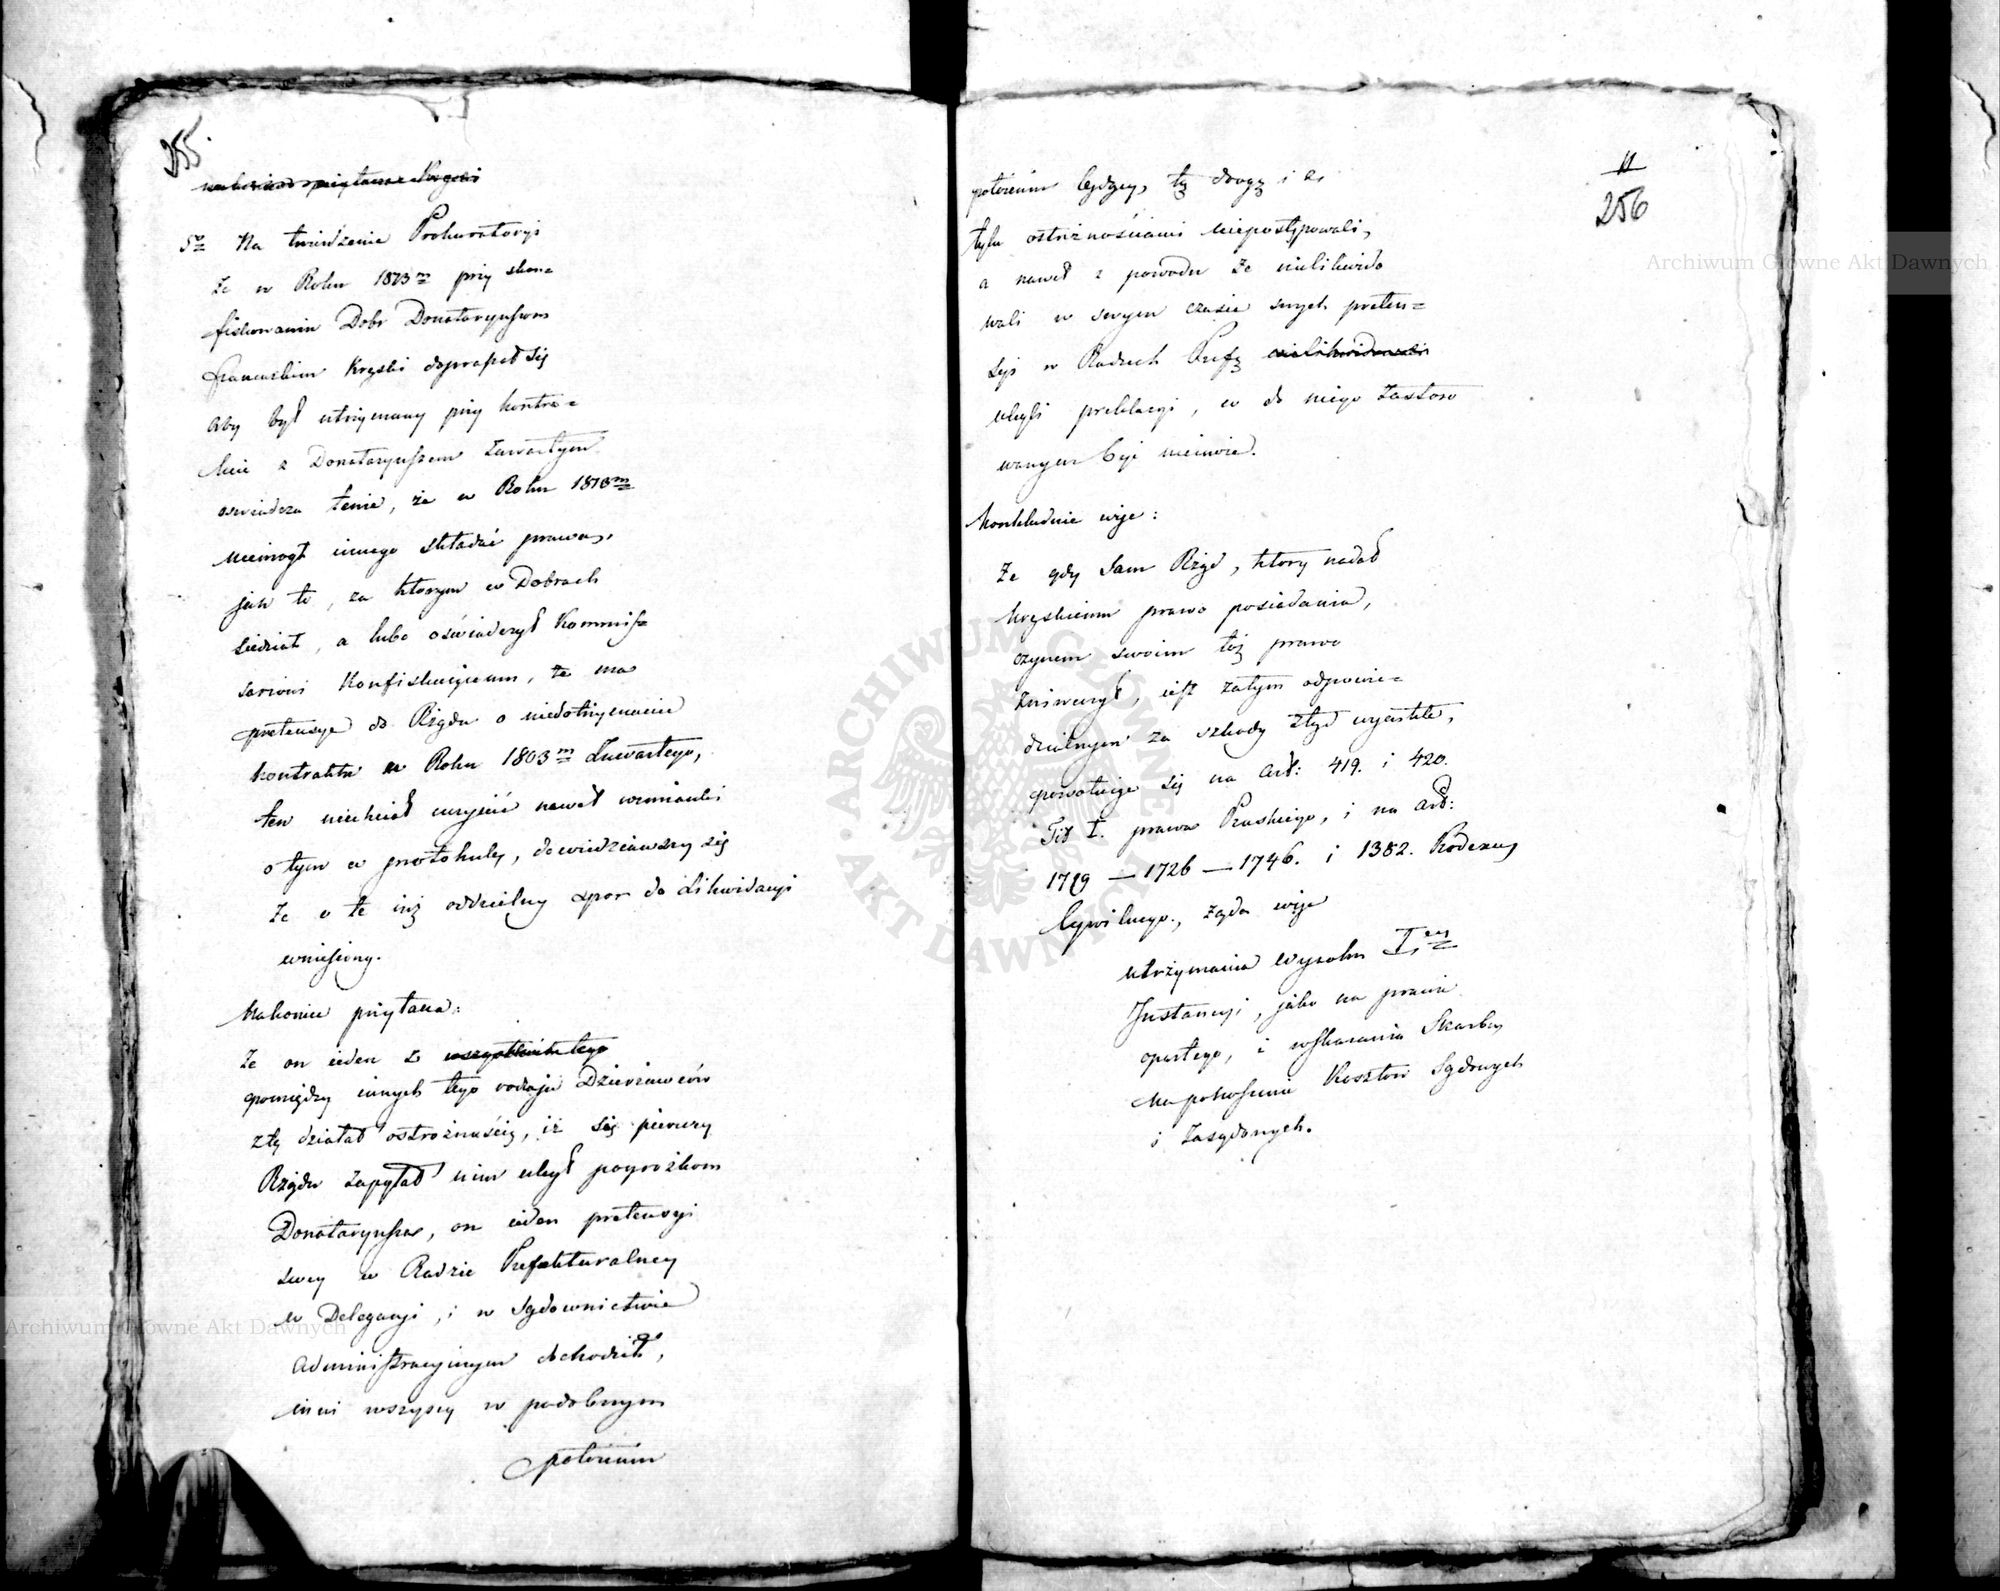 255.
5o Na twierdzenie Prokuratoryi
że w Roku 1813m przy skon=
fiskowaniu Dobr Donataryuszom
francuskim Kręski dopraszał się
aby był utrzymany przy kontra=
kcie z Donataryuszem zawartym
oswiadcza tenże, że w Roku 1813m
niemogł innego składać prawa,
jak to, za ktorym w Dobrach
siedział, a lubo oświadczył Kommis=
sarzowi Konfiskującemu, że ma
pretensye do Rządu o niedotrzymanie
kontraktu w Roku 1803m Zawartego,
ten niechciał umieścić nawet wzmianki
o tym w protokule, dowiedziawszy się
że o to iuż oddzielny spor do Likwidacyi
wniesiony.
Nakoniec przytacza:
Że on ieden z wszystkich tego
pomiędzy innych tego rodzaju Dzierżawców
z tą działał ostrożnością, iż się pierwey
Rządu zapytał nim uległ pogrożkom
Donataryusza, on ieden pretensyi
swey w Radzie Prefekturalney
w Delegacyi, i w Sądownictwie
Administracyinym dochodził,
inni wszyscy w podobnym
położeniu
11
256
położeniu będący, tą drogą i z
tylu ostrożnościami niepostępowali,
a nawet z powodu że nielikwido
wali w swym czasie swych preten=
syi w Radzach Prefą nielikwidowali
ulegli prekluzyi, co do niego zastoso
wanym być niemoże.
Konkludnie więc:
Że gdy Sam Rząd, ktory nadał
Kręskiemu prawo posiadania,
czynem swoim toż prawo
zniweczył, iest zatym odpowie=
dzialnym za szkody ztąd wynikłe,
powołuje się na Art: 419. i 420.
Tit I. prawa Pruskiego, i na Art:
1719 — 1726 — 1746. i 1382. Kodexu
Cywilnego., żąda więc
utrzymania Wyroku I.ey
Instancyi, jako na prawie
opartego, i wskazania Skarbu
na poniesienie Kosztow Sądowych
i Zasądzonych.
Archiwum Główne Akt Dawnych
Archiwum Główne Akt Dawnych
ARCHIWUM GŁÓWNE AKT DAWNYCH